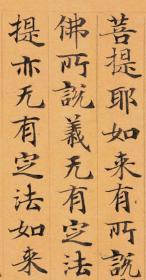 菩提耶如来有所說
佛所說義无有定法
提亦无有定法如来